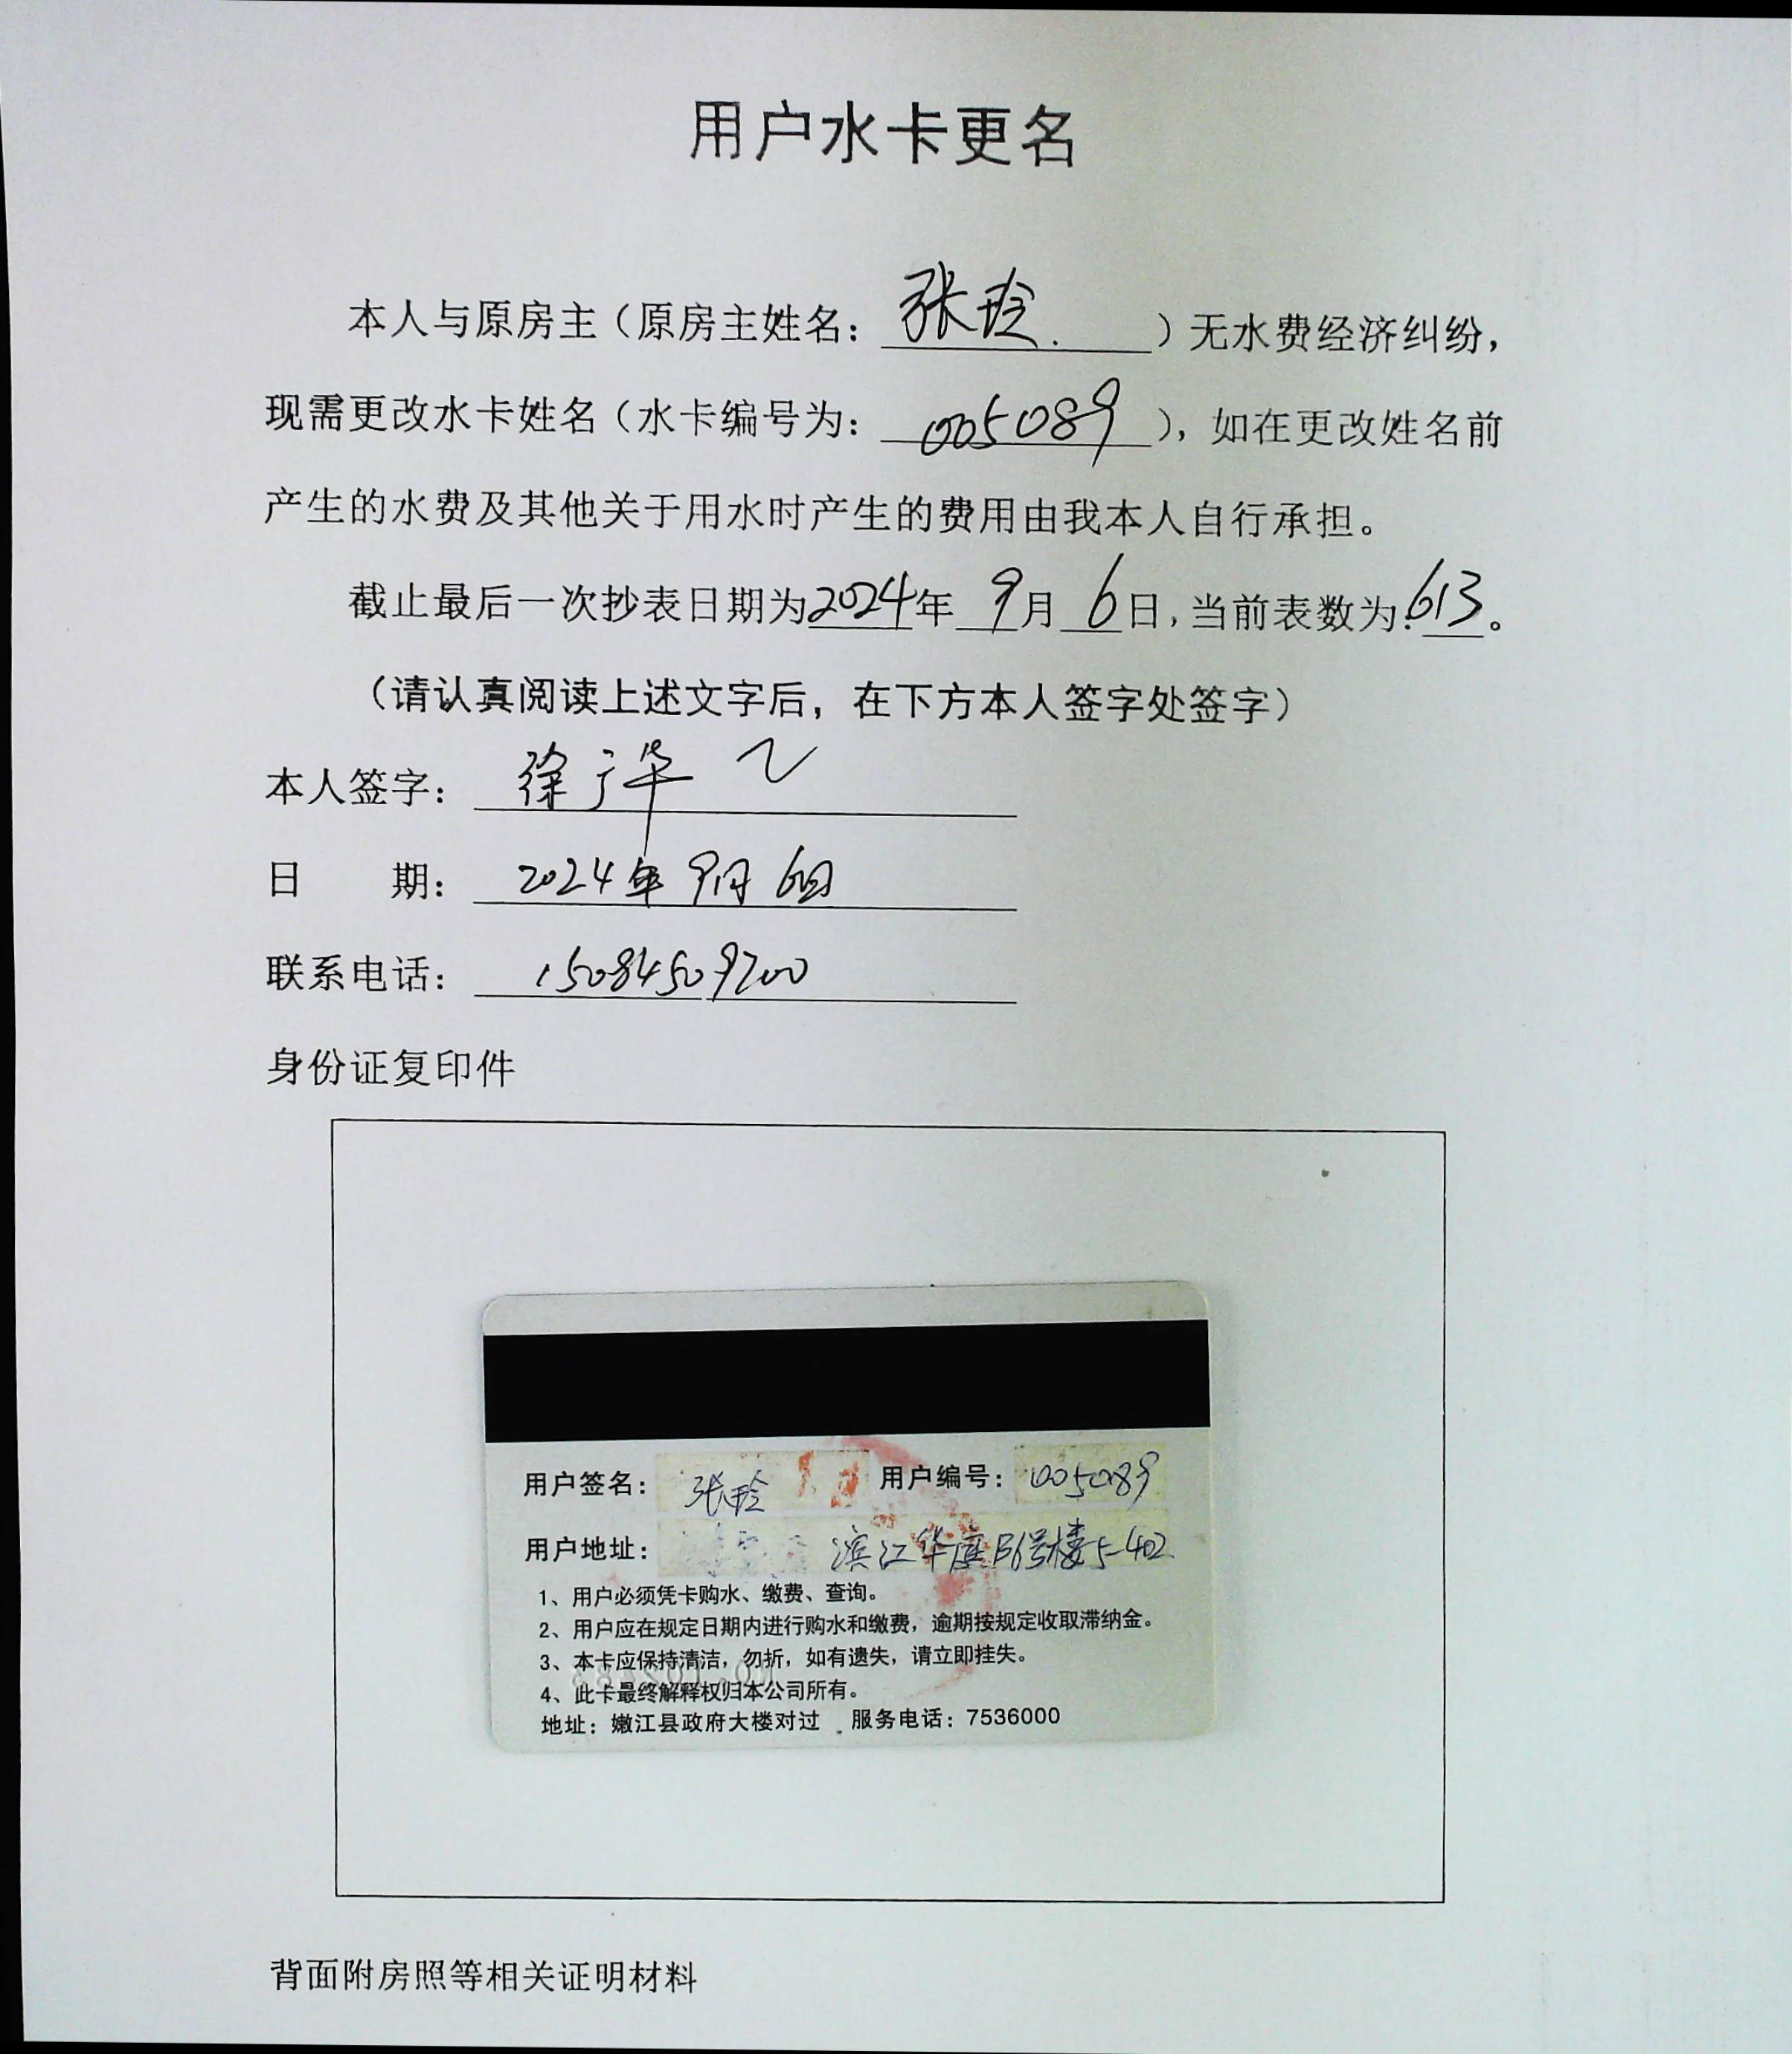 用户水卡更名
本人与原房主（原房主姓名：张玲.）无水费经济纠纷，
现需更改水卡姓名（水卡编号为：005089），如在更改姓名前
产生的水费及其他关于用水时产生的费用由我本人自行承担。
截止最后一次抄表日期为2024年9月6日，当前表数为：613。
（请认真阅读上述文字后，在下方本人签字处签字）
本人签字：徐广华
日 期：2024年9月6日
联系电话：15084509200
身份证复印件
用户签名：张玲 用户编号：005089
用户地址：滨江华庭B6号楼5-402
1、用户必须凭卡购水、缴费、查询。
2、用户应在规定日期内进行购水和缴费，逾期按规定收取滞纳金。
3、本卡应保持清洁，勿折，如有遗失，请立即挂失。
4、此卡最终解释权归本公司所有。
地址：嫩江县政府大楼对过 服务电话：7536000
背面附房照等相关证明材料